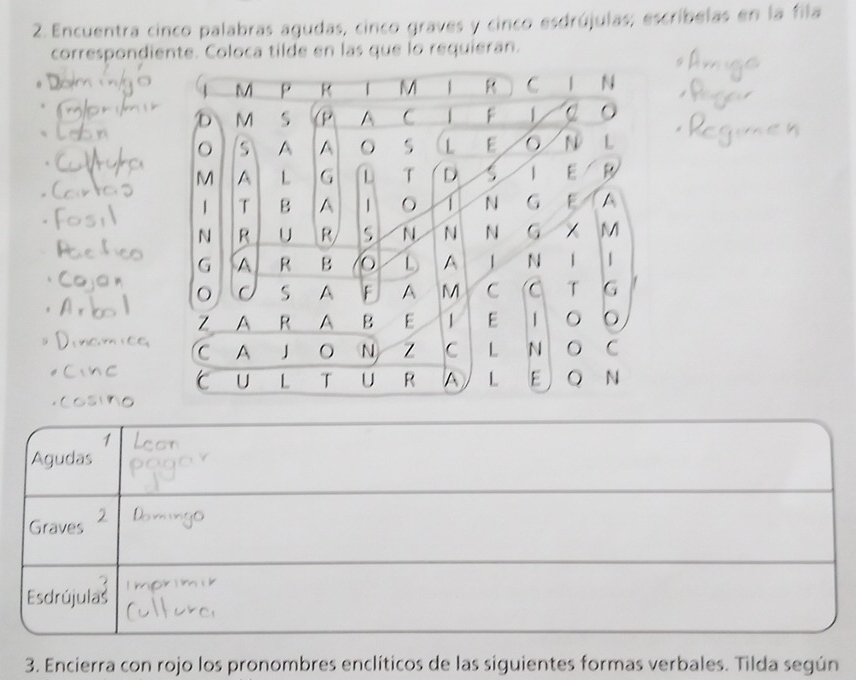 2. Encuentra cinco palabras agudas, cinco graves y cinco esdrújulas; escríbelas en la fila
correspondiente. Coloca tilde en las que lo requieran.
• Domingo
• Imprimir
• León
• Cultura
• Cartas
• Fosil
Pacifico
• Cajon
• Arbol
• Dinamica
• Cine
• cosino
I M P R I M I R C I N
D M S P A C I F I C O
O S A A O S L E O N L
M A L G L T D S I E R
I T B A I O I N G E A
N R U R S N N N G X M
G A R B O L A I N I I
O C S A F A M C C T G
Z A R A B E I E I O O
C A J O N Z C L N O C
C U L T U R A L E Q N
• Amigo
• Pagar
• Regimen
Agudas 1 Leon
pagar
Graves 2 Domingo
Esdrújulas 3 imprimir
Cultura
3. Encierra con rojo los pronombres enclíticos de las siguientes formas verbales. Tilda según